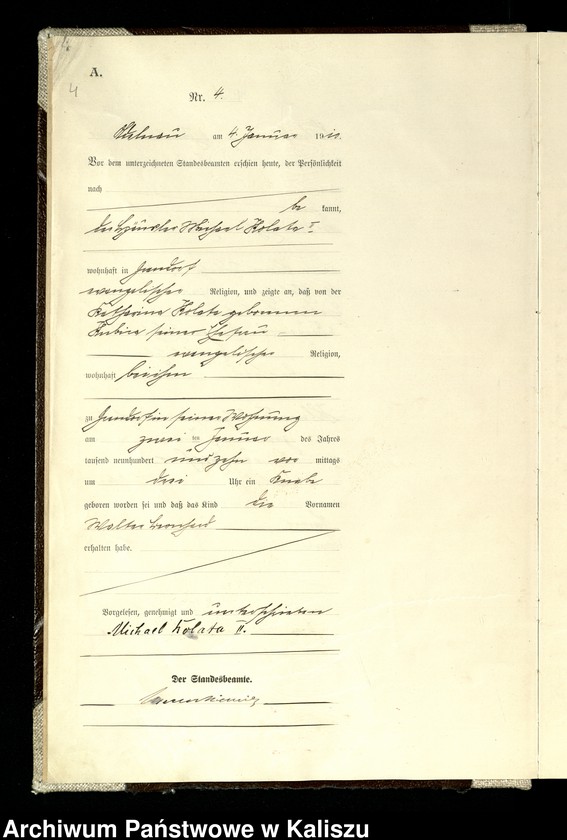 4
A.
4
Nr. 4.
am 4. Januar 1910.
Vor dem unterzeichneten Standesbeamten erschien heute, der Persönlichkeit
nach
be kannt,
der Häusler Michael Kolata
wohnhaft in
evangelischer Religion, und zeigte an, daß von der
Katharina Kolata geborenen
Kubica seiner Ehefrau
evangelischer Religion,
wohnhaft bei ihm
zu in seiner Wohnung
am zwei ten Januar des Jahres
tausend neunhundert und zehn vor mittags
um drei Uhr ein Knabe
geboren worden sei und daß das Kind die Vornamen
Walter
erhalten habe.
Vorgelesen, genehmigt und unterschrieben
Michael Kolata II.
Der Standesbeamte.
Archiwum Państwowe w Kaliszu